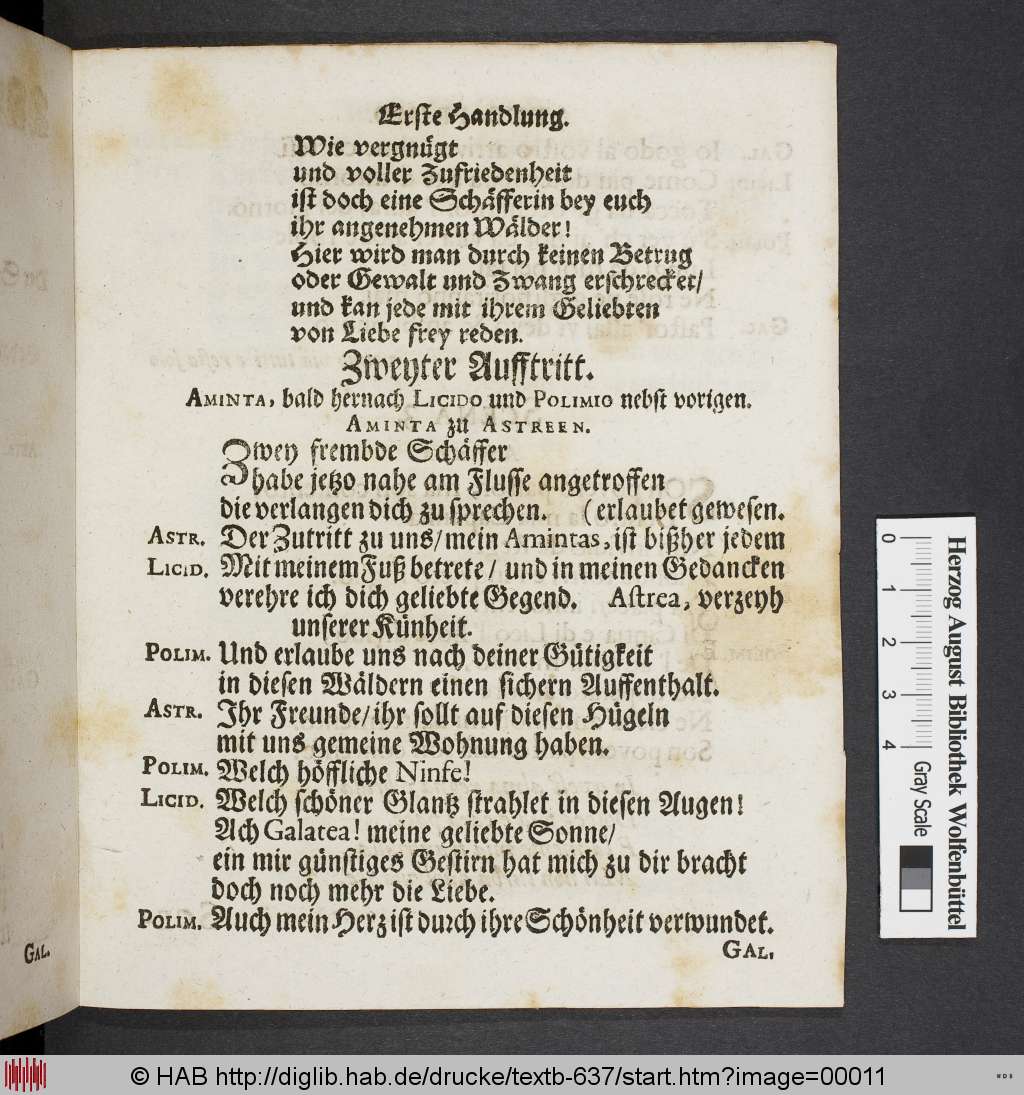 Erste Handlung.
Wie vergnügt
und voller Zufriedenheit
ist doch eine Schäfferin bey euch
ihr angenehmen Wälder!
Hier wird man durch keinen Betrug
oder Gewalt und Zwang erschrecket/
und kan jede mit ihrem Geliebten
von Liebe frey reden.
Zweyter Aufftritt.
AMINTA, bald hernach LICIDO und POLIMIO nebst vorigen.
AMINTA zu ASTREEN.
Zwey frembde Schäffer
habe jetzo nahe am Flusse angetroffen
die verlangen dich zu sprechen. (erlaubet gewesen.
ASTR. Der Zutritt zu uns/mein Amintas, ist bißher jedem
LICID. Mit meinem Fuß betrete/ und in meinen Gedancken
verehre ich dich geliebte Gegend. Astrea, verzeyh
unserer Künheit.
POLIM. Und erlaube uns nach deiner Gütigkeit
in diesen Wäldern einen sichern Auffenthalt.
ASTR. Ihr Freunde/ihr sollt auf diesen Hügeln
mit uns gemeine Wohnung haben.
POLIM. Welch höffliche Ninfe!
LICID. Welch schöner Glantz strahlet in diesen Augen!
Ach Galatea! meine geliebte Sonne/
ein mir günstiges Gestirn hat mich zu dir bracht
doch noch mehr die Liebe.
POLIM. Auch mein Herz ist durch ihre Schönheit verwundet.
GAL.
GAL.
0 1 2 3 4
Gray Scale
Herzog August Bibliothek Wolfenbüttel
© HAB http://diglib.hab.de/drucke/textb-637/start.htm?image=00011